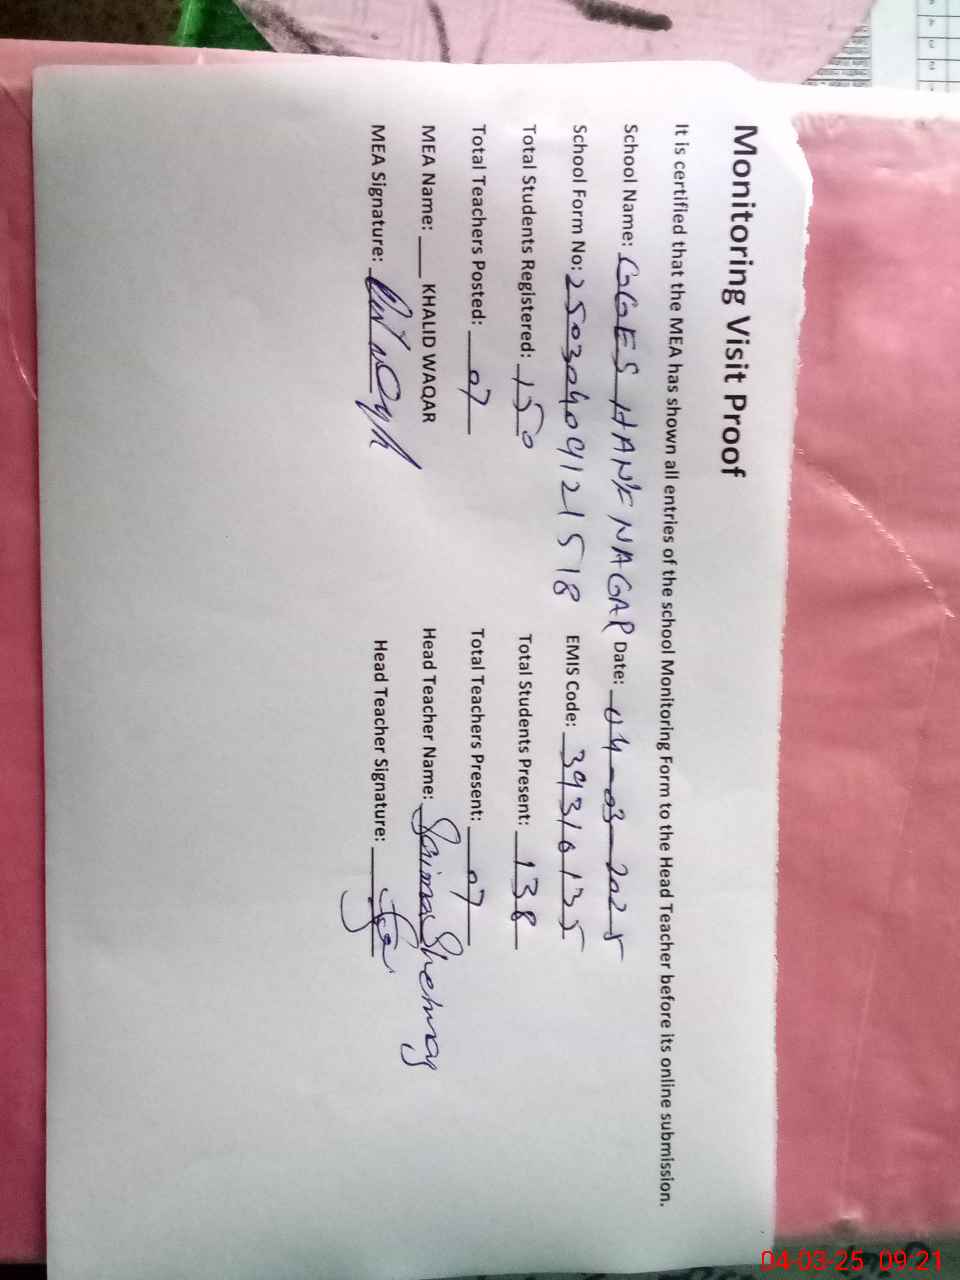 Monitoring Visit Proof
It is certified that the MEA has shown all entries of the school Monitoring Form to the Head Teacher before its online submission.
School Name: GGES HANK NAGAR Date: 04-03-2025
School Form No: 25030409121518 EMIS Code: 39316135
Total Students Registered: 150 Total Students Present: 138
Total Teachers Posted: 07 Total Teachers Present: 07
MEA Name: KHALID WAQAR Head Teacher Name: Saima Shehnaz
MEA Signature: Head Teacher Signature:
04-03-25 09:21